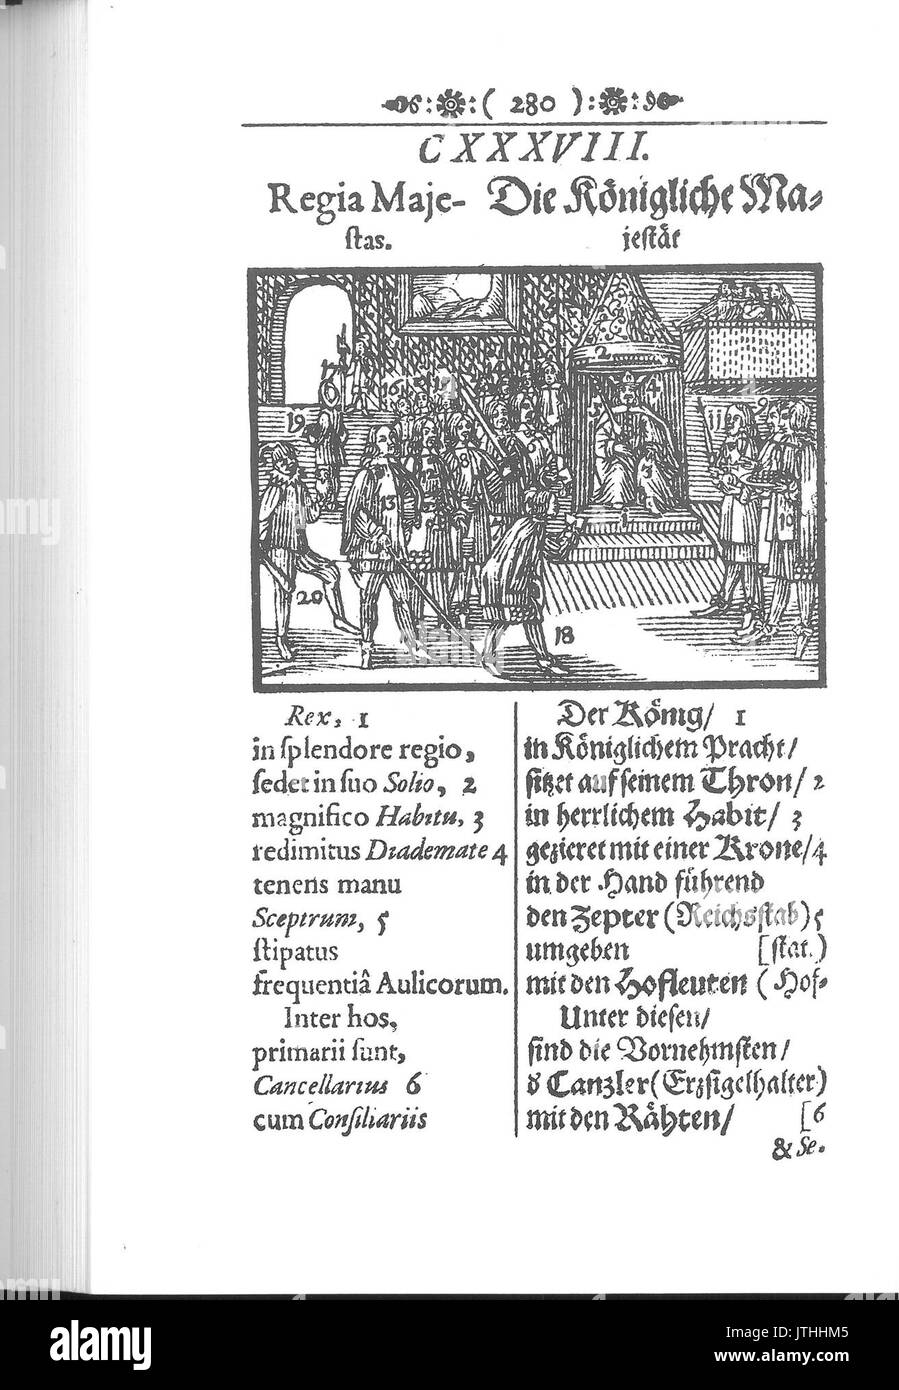 ( 280 )
CXXXVIII.
Regia Maje-
ſtas.
Die Königliche Ma-
jeſtät
Rex, 1
in ſplendore regio,
ſedet in ſuo Solio, 2
magnifico Habitu, 3
redimitus Diademate 4
tenens manu
Sceptrum, 5
ſtipatus
frequentiâ Aulicorum.
Inter hos,
primarii ſunt,
Cancellarius 6
cum Conſiliariis
Der König/ 1
in Königlichem Pracht/
ſitzet auf ſeinem Thron/ 2
in herrlichem Habit/ 3
gezieret mit einer Krone/ 4
in der Hand führend
den Zepter (Reichsſtab) 5
umgeben [ſtat.)
mit den Hofleuten (Hof-
Unter dieſen/
ſind die Vornehmſten/
đ Canzler (Erzſigelhalter)
mit den Rähten/ [6
& Se.
alamy
www.alamy.com
Image ID: JTHHM5